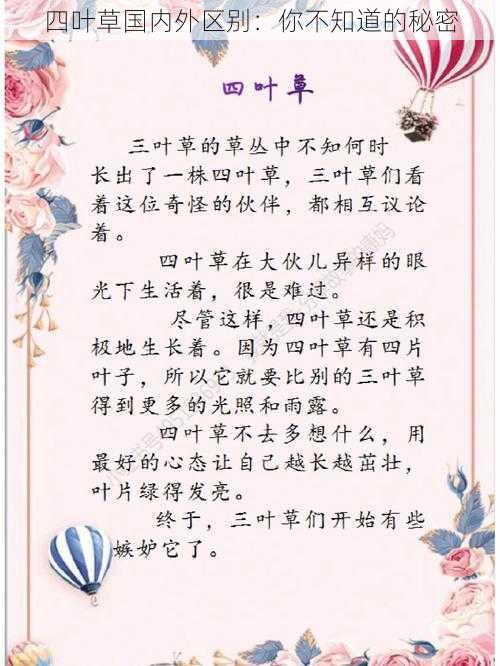 四叶草国内外区别：你不知道的秘密
四叶草
三叶草的草丛中不知何时
长出了一株四叶草，三叶草们看
着这位奇怪的伙伴，都相互议论
着。
四叶草在大伙儿异样的眼
光下生活着，很是难过。
尽管这样，四叶草还是积
极地生长着。因为四叶草有四片
叶子，所以它就要比别的三叶草
得到更多的光照和雨露。
四叶草不去多想什么，用
最好的心态让自己越长越茁壮，
叶片绿得发亮。
终于，三叶草们开始有些
嫉妒它了。